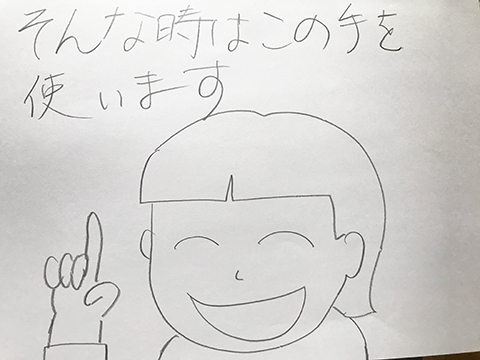 そんな時はこの手を
使います